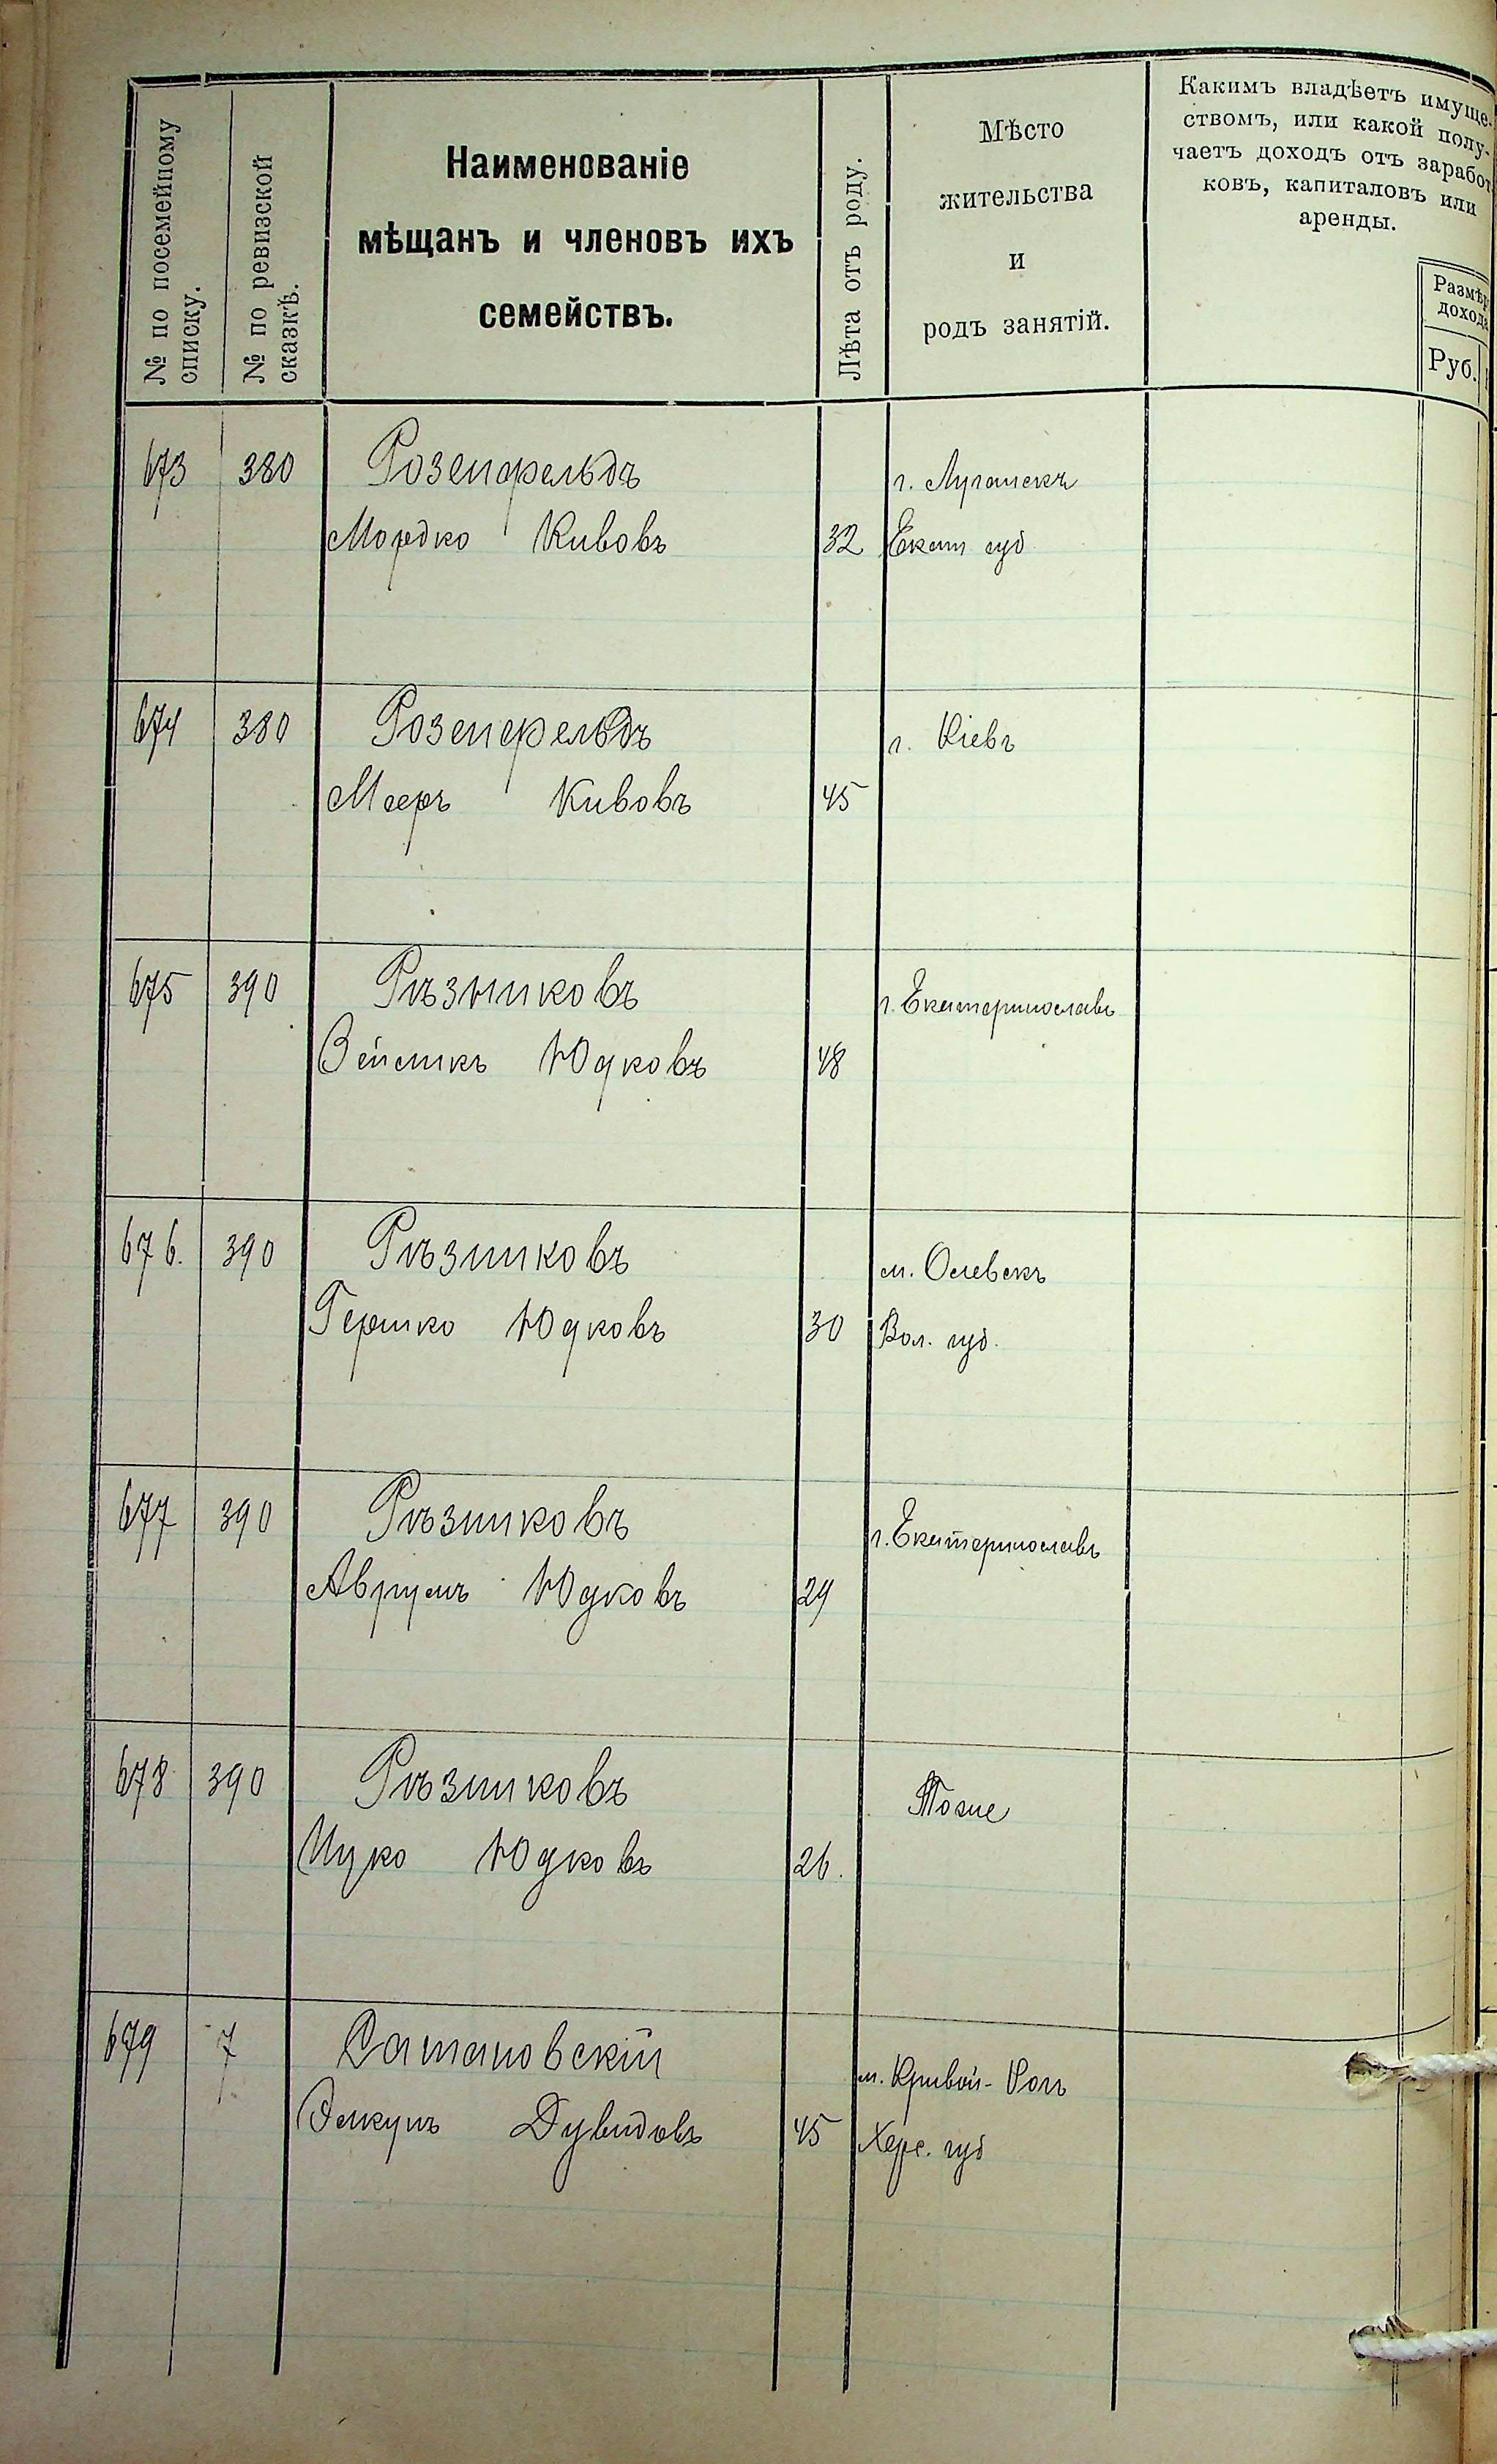 № по посемейному
списку.
№ по ревизской
сказкѣ.
Наименованіе
мѣщанъ и членовъ ихъ
семействъ.
Лѣта отъ роду.
Мѣсто
жительства
и
родъ занятій.
Какимъ владѣетъ имуще-
ствомъ, или какой полу-
чаетъ доходъ отъ заработ
ковъ, капиталовъ или
аренды.
Размѣр
дохода
Руб.
673 380 Розенфельдъ г. Луганскъ
Мордко Кивовъ 32 Екат губ
674 380 Розенфельдъ г. Кіевъ
Мееръ Кивовъ 45
675 390 Рѣзниковъ г. Екатеринославъ
Зейликъ Юдковъ 48
676. 390 Рѣзниковъ м. Олевскъ
Гершко Юдковъ 30 Вол. губ.
677 390 Рѣзниковъ г. Екатеринославъ
Аврумъ Юдковъ 29
678 390 Рѣзниковъ Тоже
Ицко Юдковъ 26.
679 7 Сатановскій м. Кривой-Рогъ
Элкунъ Дувидовъ 45 Херс. губ